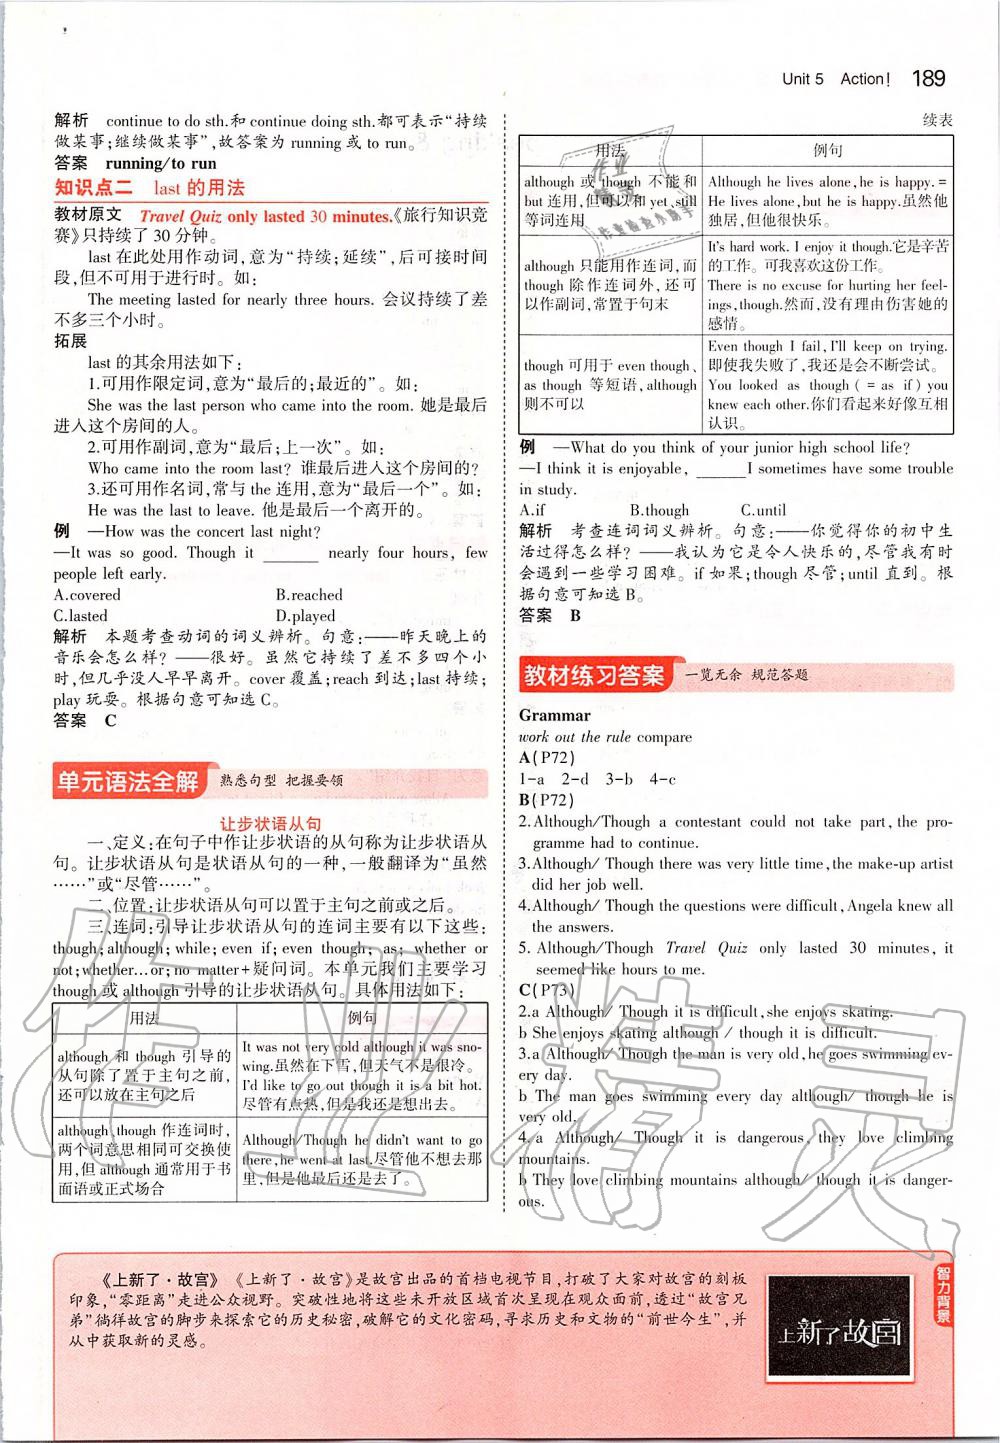 Unit 5 Action! 189
解析 continue to do sth.和 continue doing sth.都可表示“持续
做某事;继续做某事”,故答案为 running 或 to run。
答案 running/to run
知识点二 last 的用法
教材原文 Travel Quiz only lasted 30 minutes.《旅行知识竞
赛》只持续了 30 分钟。
last 在此处用作动词,意为“持续;延续”,后可接时间
段,但不可用于进行时。如:
The meeting lasted for nearly three hours. 会议持续了差
不多三个小时。
拓展
last 的其余用法如下:
1.可用作限定词,意为“最后的;最近的”。如:
She was the last person who came into the room. 她是最后
进入这个房间的人。
2.可用作副词,意为“最后;上一次”。如:
Who came into the room last? 谁最后进入这个房间的?
3.还可用作名词,常与 the 连用,意为“最后一个”。如:
He was the last to leave. 他是最后一个离开的。
例 —How was the concert last night?
—It was so good. Though it ______ nearly four hours, few
people left early.
A.covered B.reached
C.lasted D.played
解析 本题考查动词的词义辨析。句意:——昨天晚上的
音乐会怎么样? ——很好。虽然它持续了差不多四个小
时,但几乎没人早早离开。cover 覆盖;reach 到达;last 持续;
play 玩耍。根据句意可知选 C。
答案 C
单元语法全解 熟悉句型 把握要领
让步状语从句
一、定义:在句子中作让步状语的从句称为让步状语从
句。让步状语从句是状语从句的一种,一般翻译为“虽然
……”或“尽管……”。
二、位置:让步状语从句可以置于主句之前或之后。
三、连词:引导让步状语从句的连词主要有以下这些:
though; although; while; even if; even though; as; whether or
not; whether... or; no matter+疑问词。本单元我们主要学习
though 或 although 引导的让步状语从句。具体用法如下:
用法 例句
although 和 though 引导的
从句除了置于主句之前,
还可以放在主句之后
It was not very cold although it was sno-
wing.虽然在下雪,但天气不是很冷。
I'd like to go out though it is a bit hot.
尽管有点热,但是我还是想出去。
although、though 作连词时,
两个词意思相同可交换使
用,但 although 通常用于书
面语或正式场合
Although/Though he didn't want to go
there, he went at last.尽管他不想去那
里,但是他最后还是去了。
续表
用法 例句
although 或 though 不能和
but 连用,但可以和 yet、still
等词连用
Although he lives alone, he is happy. =
He lives alone, but he is happy.虽然他
独居,但他很快乐。
although 只能用作连词,而
though 除作连词外,还可
以作副词,常置于句末
It's hard work. I enjoy it though.它是辛苦
的工作。可我喜欢这份工作。
There is no excuse for hurting her feel-
ings, though.然而,没有理由伤害她的
感情。
though 可用于 even though、
as though 等短语,although
则不可以
Even though I fail, I'll keep on trying.
即使我失败了,我还是会不断尝试。
You looked as though ( = as if) you
knew each other.你们看起来好像互相
认识。
例 —What do you think of your junior high school life?
—I think it is enjoyable, ______ I sometimes have some trouble
in study.
A.if B.though C.until
解析 考查连词词义辨析。句意:——你觉得你的初中生
活过得怎么样? ——我认为它是令人快乐的,尽管我有时
会遇到一些学习困难。if 如果;though 尽管;until 直到。根
据句意可知选 B。
答案 B
教材练习答案 一览无余 规范答题
Grammar
work out the rule compare
A(P72)
1-a 2-d 3-b 4-c
B(P72)
2.Although/Though a contestant could not take part, the pro-
gramme had to continue.
3.Although/ Though there was very little time, the make-up artist
did her job well.
4.Although/ Though the questions were difficult, Angela knew all
the answers.
5. Although/Though Travel Quiz only lasted 30 minutes, it
seemed like hours to me.
C(P73)
2.a Although/ Though it is difficult, she enjoys skating.
b She enjoys skating although / though it is difficult.
3.a Although/ Though the man is very old, he goes swimming ev-
ery day.
b The man goes swimming every day although/ though he is
very old.
4. a Although/ Though it is dangerous, they love climbing
mountains.
b They love climbing mountains although/ though it is danger-
ous.
《上新了·故宫》 《上新了·故宫》是故宫出品的首档电视节目,打破了大家对故宫的刻板
印象,“零距离”走进公众视野。突破性地将这些未开放区域首次呈现在观众面前,透过“故宫兄
弟”徜徉故宫的脚步来探索它的历史秘密,破解它的文化密码,寻求历史和文物的“前世今生”,并
从中获取新的灵感。
上新了故宫
智力背景
作业精灵